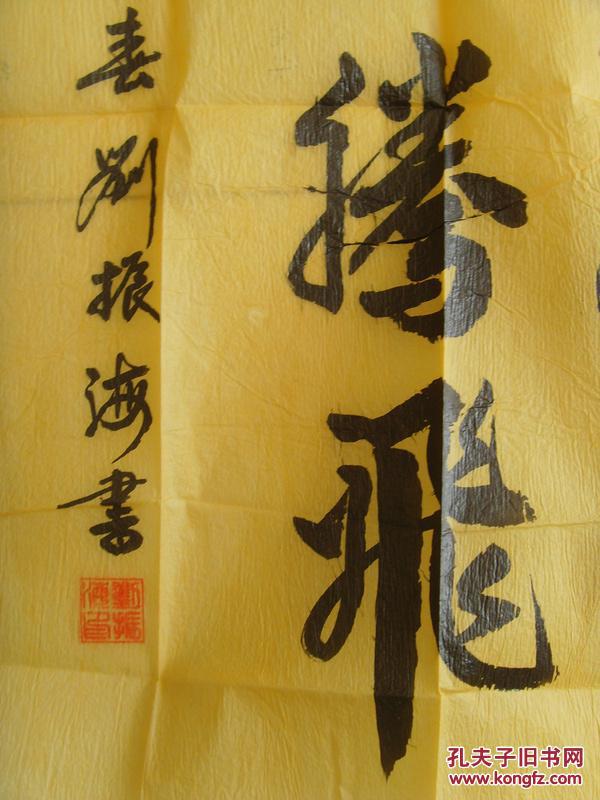 腾飞
春劉振海書
劉振海印
孔夫子旧书网
www.kongfz.com